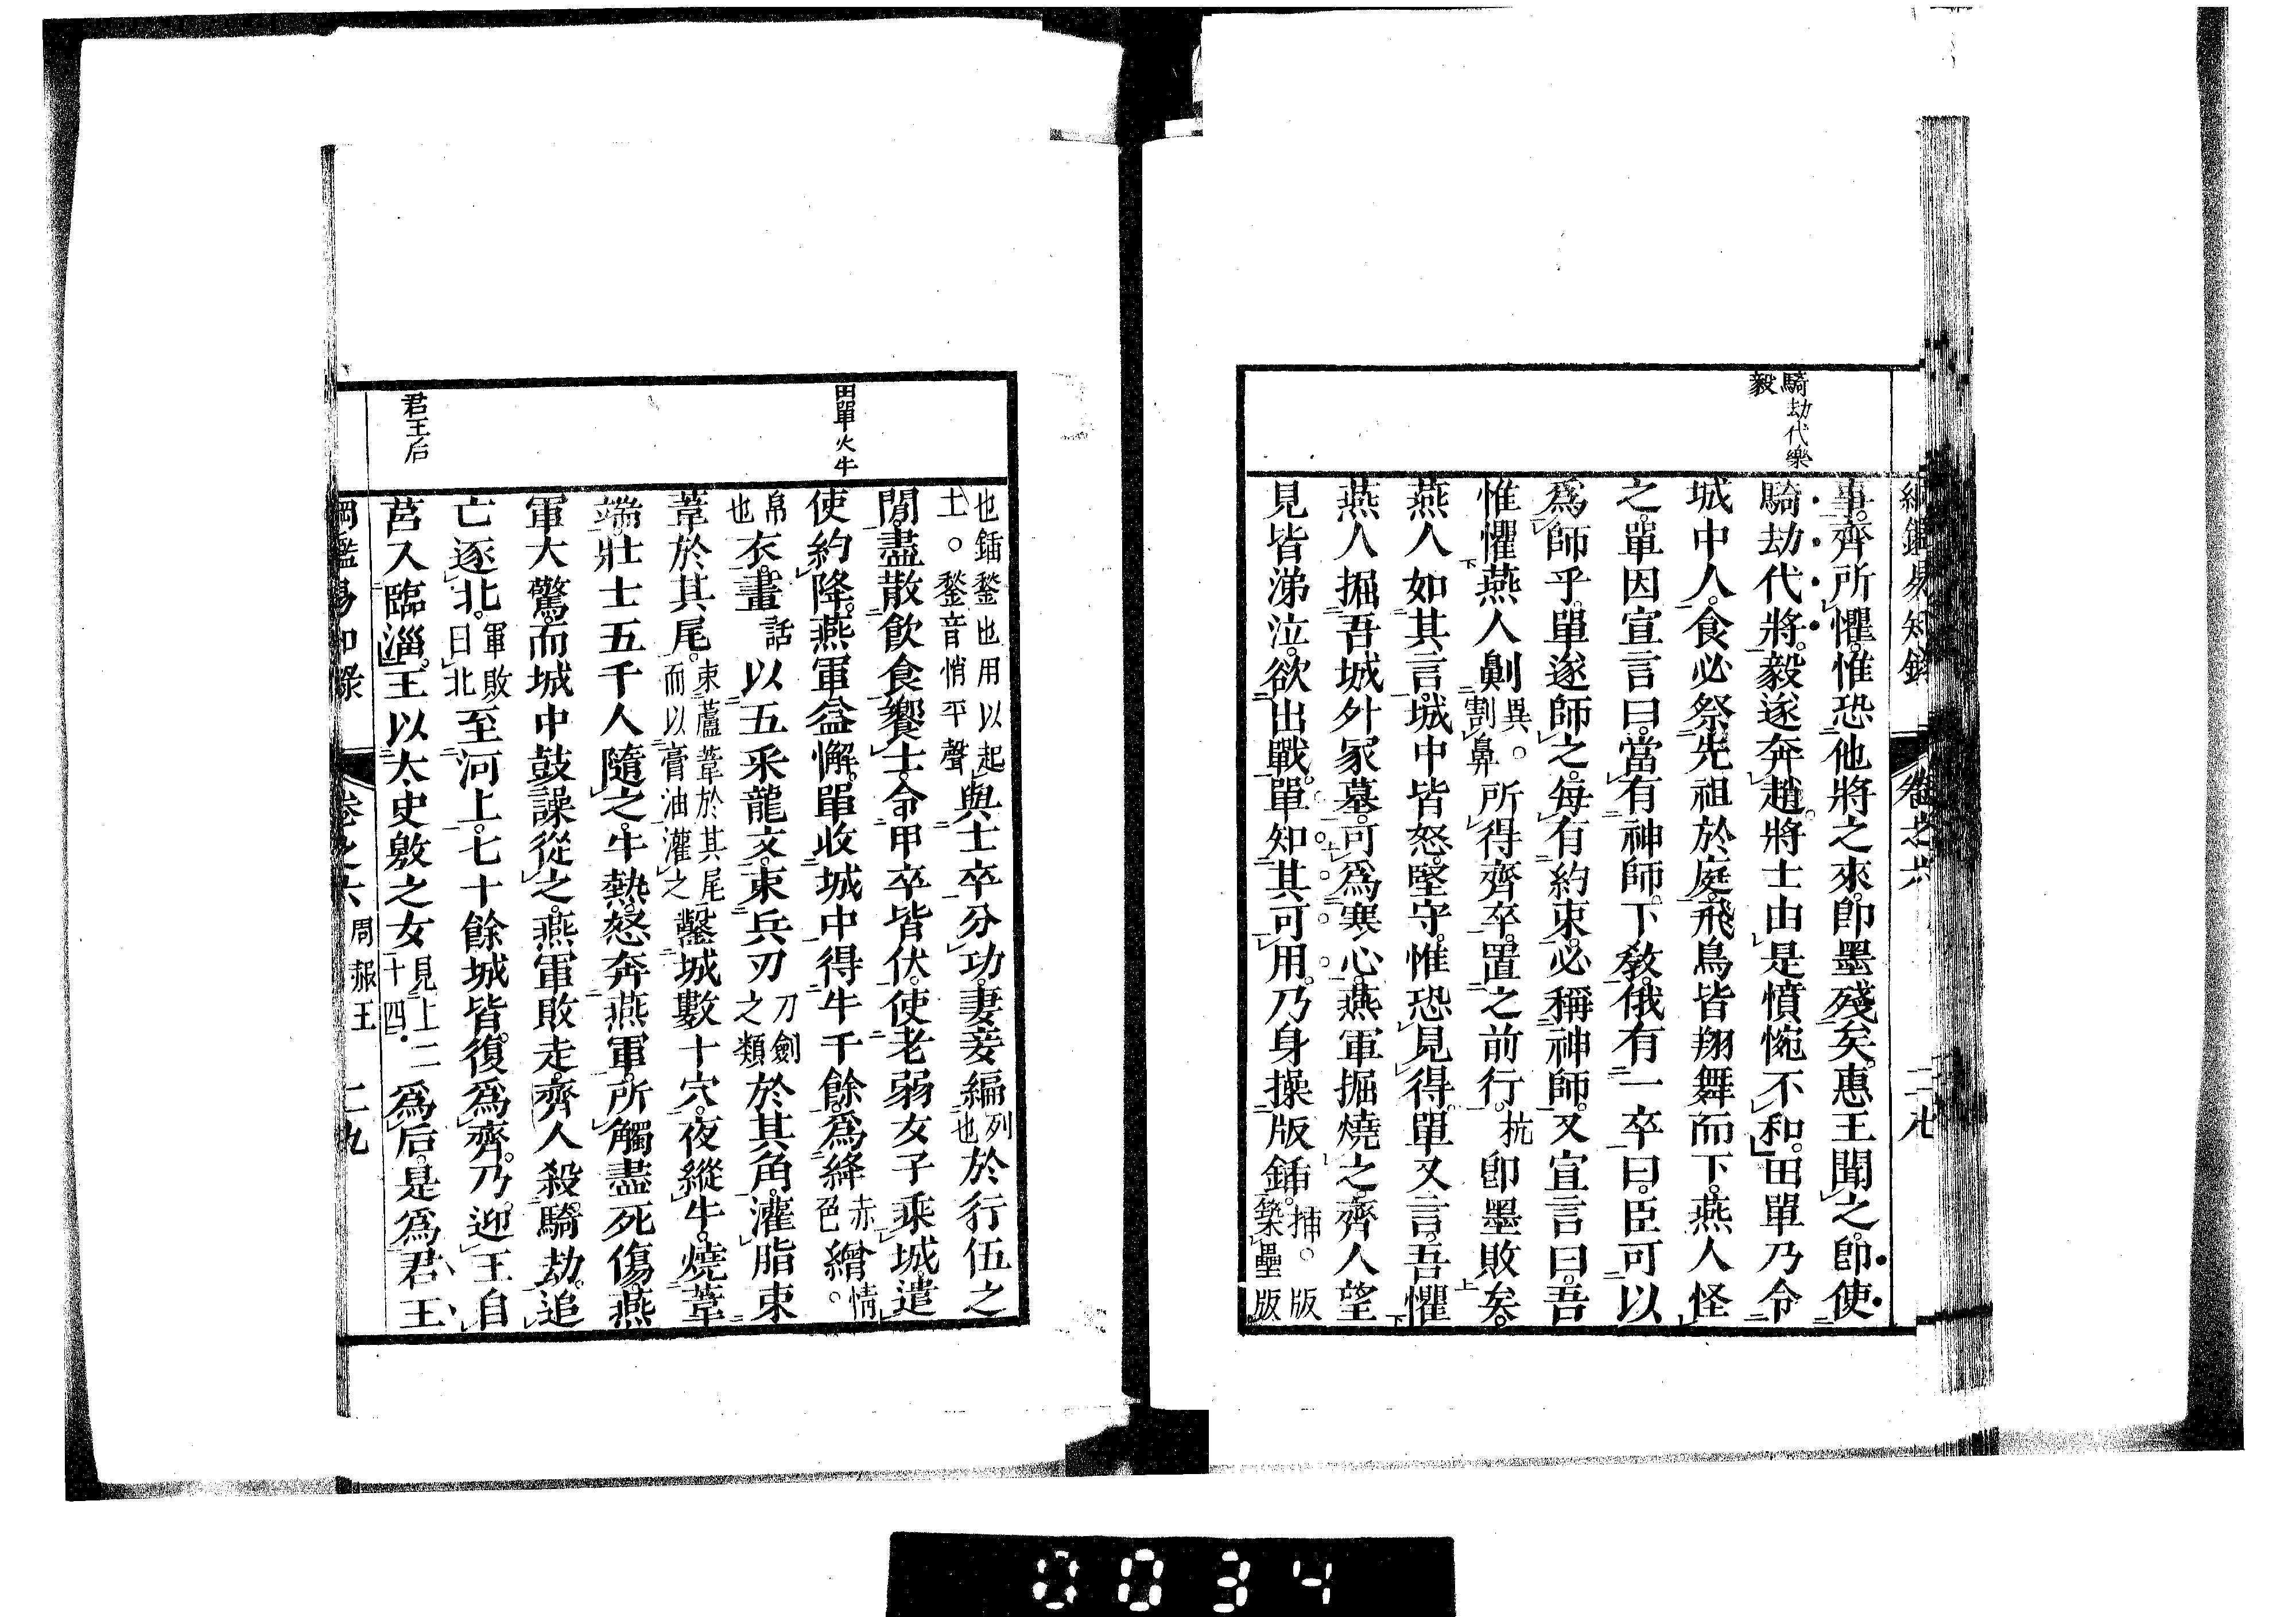 綱鑑易知錄 卷之六
騎劫代樂
毅
事。齊所懼。惟恐他將之來。卽墨殘矣。惠王聞之。卽使
騎劫代將。毅遂奔趙。將士由是憤惋不和。田單乃令
城中人。食必祭先祖於庭。飛鳥皆翔舞而下。燕人怪
之。單因宣言曰。當有神師。下敎。俄有一卒曰。臣可以
爲師乎。單遂師之。每有約束。必稱神師。又宣言曰。吾
惟懼燕人劓異。割鼻所得齊卒。置之前行。杭卽墨敗矣。
燕人如其言。城中皆怒。堅守。惟恐見得。單又言。吾懼
燕人掘吾城外冢墓。可爲寒心。燕軍掘燒之。齊人望
見皆涕泣。欲出戰。單知其可用。乃身操版鍤。揷。版築壘版
田單火牛
君王后
也鍤鍫也用以起土。鍫音悄平聲與士卒分功。妻妾編列也於行伍之
閒。盡散飮食饗士。令甲卒皆伏。使老弱女子乘城。遣
使約降。燕軍益懈。單收城中得牛千餘。爲絳赤色繒情。
帛也衣。畫話以五采龍文。束兵刃刀劍之類於其角。灌脂束
葦於其尾。束蘆葦於其尾而以膏油灌之鑿城數十穴。夜縱牛。燒葦
端。壯士五千人隨之。牛熱。怒奔燕軍。所觸盡死傷。燕
軍大驚。而城中鼓譟從之。燕軍敗走。齊人殺騎劫。追
亡逐北。軍敗曰北至河上。七十餘城皆。復爲齊。乃迎王自
莒入臨淄。王以太史敫之女見上二十四。爲后。是爲君王
綱鑑易知錄 卷之六 周赧王 二九
0034